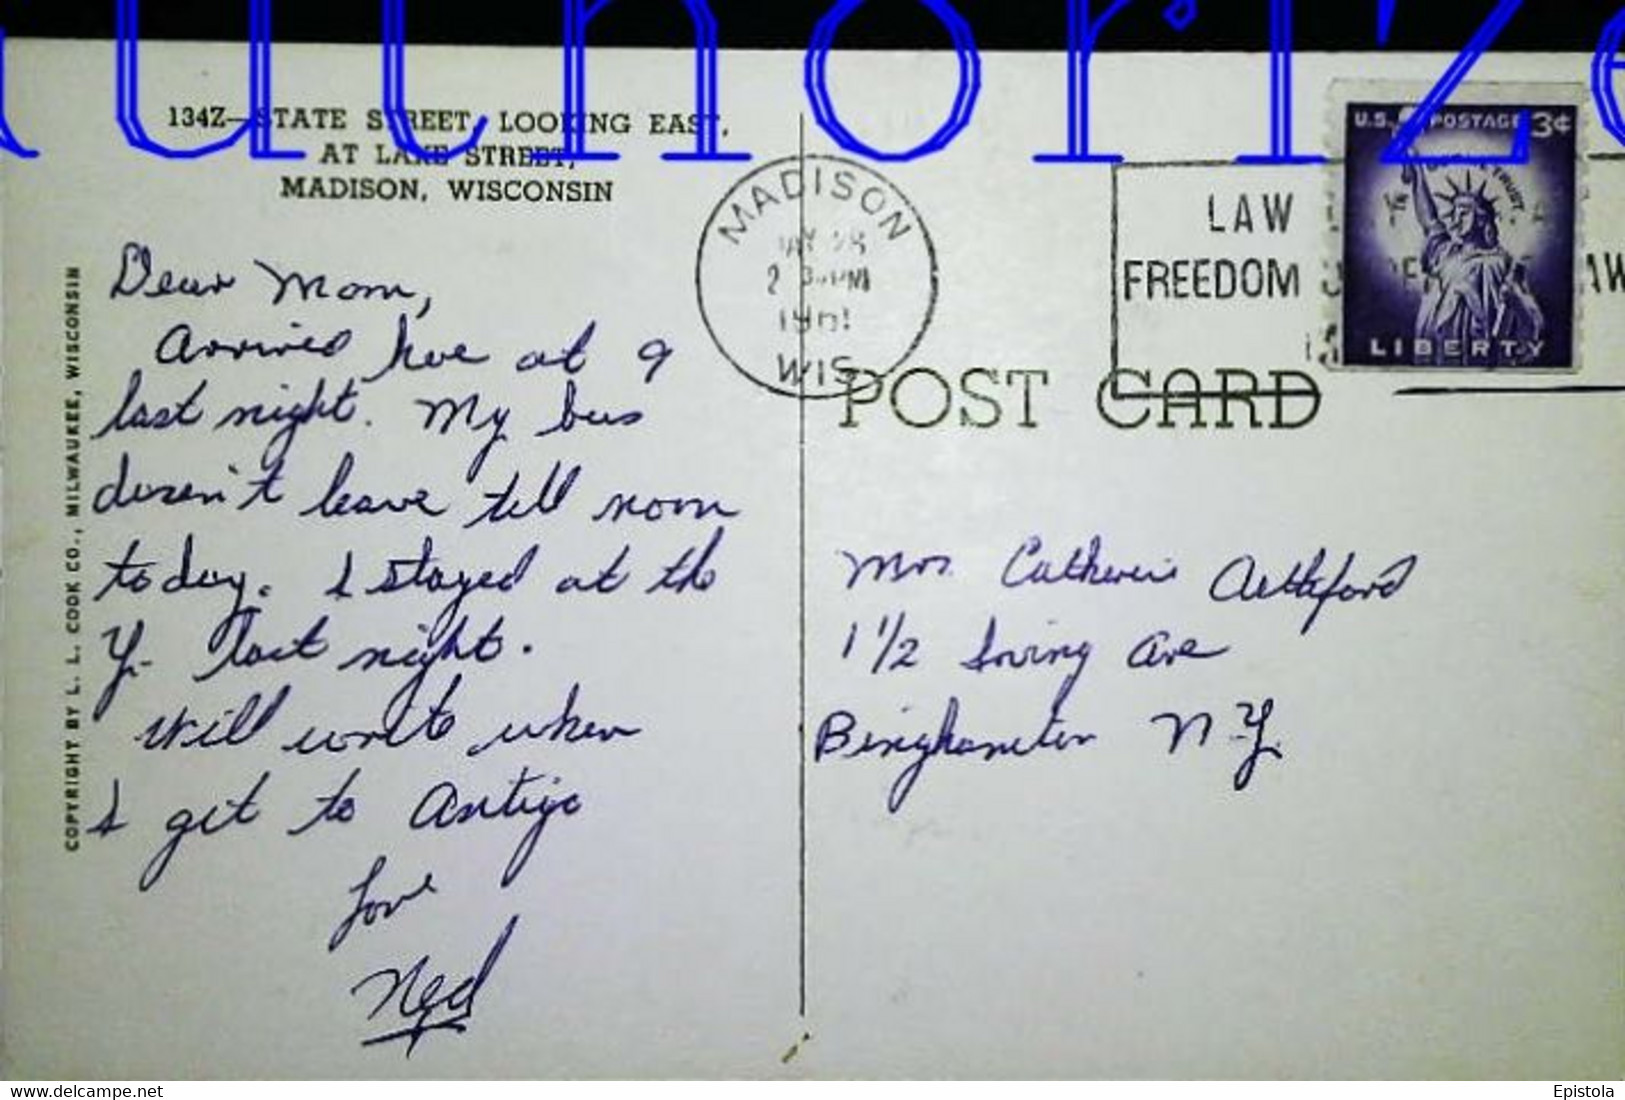 134Z—STATE STREET, LOOKING EAST,
AT LAKE STREET,
MADISON, WISCONSIN
COPYRIGHT BY L. L. COOK CO., MILWAUKEE, WISCONSIN
Dear Mom,
Arrived here at 9
last night. My bus
doesn't leave till noon
today. I stayed at the
Y. last night.
Will write when
I get to Antigo
Love
Ned
MADISON
2 PM
1961
WIS
LAW
FREEDOM
U.S. POSTAGE 3¢
IN GOD WE TRUST
LIBERTY
POST CARD
Mrs. Catherine
1 1/2 Irving Ave
Binghamton N.Y.
authorize
delcampe.net
Epistola